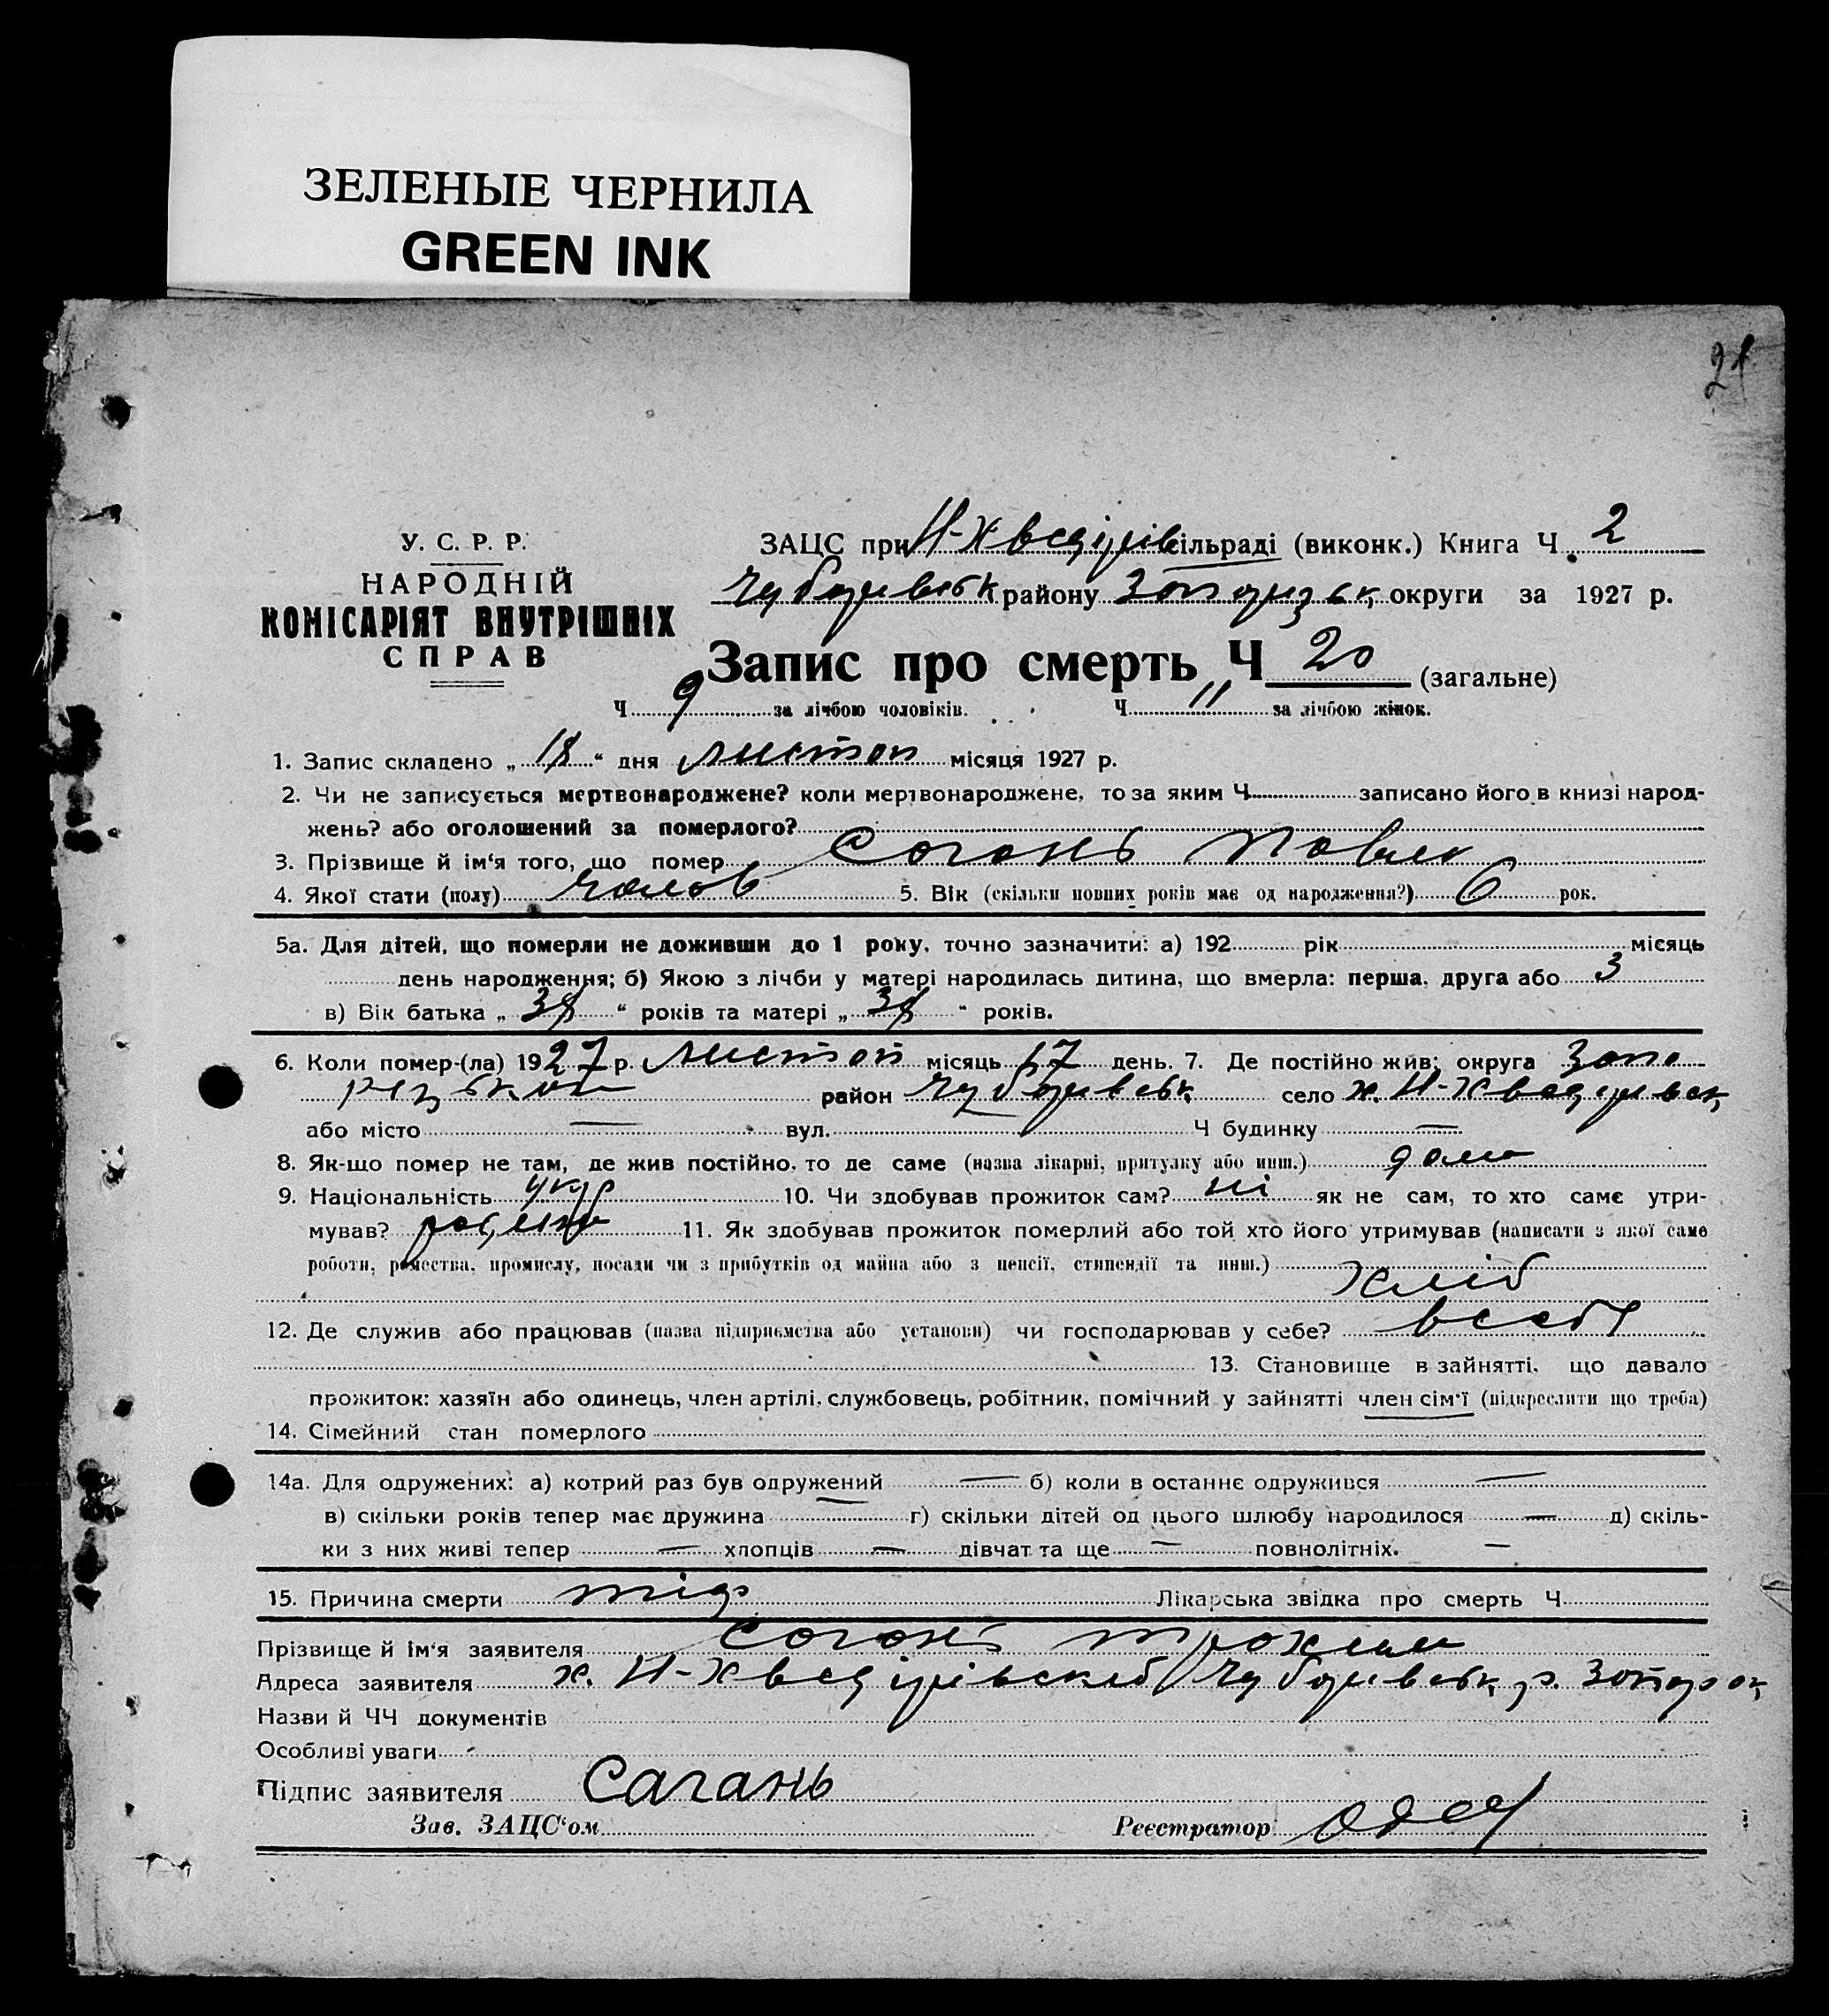 ЗЕЛЕНЫЕ ЧЕРНИЛА
GREEN INK
У. С. Р. Р.
НАРОДНІЙ
КОМІСАРІЯТ ВНУТРІШНІХ
СПРАВ
ЗАЦС при Н-Хведірів сільраді (виконк.) Книга Ч. 2
Чубарівськ району Запоризьк. округи за 1927 р.
Запис про смерть Ч 20 (загальне)
Ч 9 за лічбою чоловіків. Ч 11 за лічбою жінок.
1. Запис складено „ 18 “ дня листоп місяця 1927 р.
2. Чи не записується мертвонароджене? коли мертвонароджене, то за яким Ч записано його в книзі народ-
жень? або оголошений за померлого?
3. Прізвище й ім‘я того, що помер Согонь Павло
4. Якої стати (полу) чолов 5. Вік (скільки повних років має од народження?) 6 рок.
5а. Для дітей, що померли не доживши до 1 року, точно зазначити: а) 192 рік місяць
день народження; б) Якою з лічби у матері народилась дитина, що вмерла: перша, друга або 3
в) Вік батька „ 38 “ років та матері „ 38 “ років.
6. Коли помер-(ла) 1927 р. листоп місяць 17 день. 7. Де постійно жив: округа Запо
різькой район Чубарівськ. село х. Н-Хведірівськ,
або місто — вул. Ч будинку —
8. Як-що помер не там, де жив постійно, то де саме (назва лікарні, притулку або инш.) дома
9. Національність укр 10. Чи здобував прожиток сам? ні як не сам, то хто саме утри-
мував? родител 11. Як здобував прожиток померлий або той хто його утримував (написати з якої саме
роботи, ремества, промислу, посади чи з прибутків од майна або з пенсії, стипендії та инш.)
хліб
12. Де служив або працював (назва підприємства або установи) чи господарював у себе? всебя
13. Становище в зайнятті, що давало
прожиток: хазяїн або одинець, член артілі, службовець, робітник, помічний у зайнятті член сім‘ї (підкреслити що треба)
14. Сімейний стан померлого
14а. Для одружених: а) котрий раз був одружений — б) коли в останнє одружився —
в) скільки років тепер має дружина — г) скільки дітей од цього шлюбу народилося — д) скіль-
ки з них живі тепер — хлопців — дівчат та ще — повнолітніх. —
15. Причина смерти тіф Лікарська звідка про смерть Ч
Прізвище й ім‘я заявителя Согонь Трохим
Адреса заявителя х. Н-Хведірівський Чубарівськ, р. Запор ок,
Назви й ЧЧ документів
Особливі уваги
Підпис заявителя Сагань
Зав. ЗАЦС‘ом Реєстратор